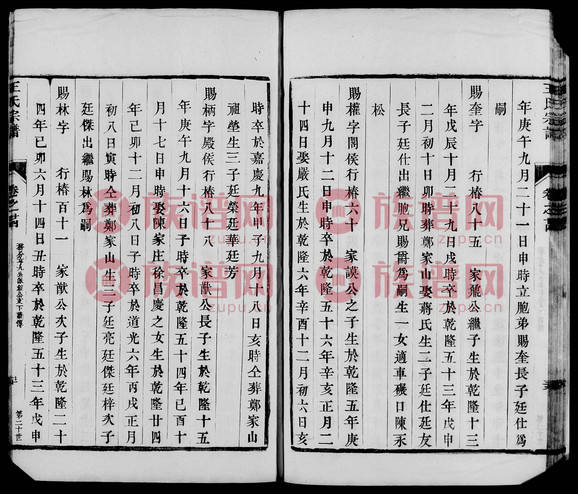 王氏宗譜
年庚午九月二十一日申時立胞弟賜奎長子廷仕爲
嗣
賜奎字 行椿八十五 家龍公繼子生於乾隆十三
年戊辰十月三十九戌時卒於乾隆四十八年戊申
二月初十日卯時葬鄭家山娶蔣氏生二子廷仕廷友
長子廷仕出繼胞兄賜爾爲嗣生一女適車磯日陳永
松
賜權字閣侯行椿八十六 家謨公之子生於乾隆五年庚
申九月十二日亥時卒於乾隆五十六年辛亥正月二
十四日娶嚴氏生於乾隆六年辛酉十二月初六日亥
王氏宗譜
時卒於嘉慶九年甲子九月十八日亥時仝葬鄭家山
祖塋生三子廷榮廷華廷芳
賜柄字殿侯行椿八十八 家猷公長子生於乾隆十五
年庚午九月十六日子時卒於乾隆五十四年己酉十
月十七日申時娶陳家庄徐昌慶之女生於乾隆廿四
年己卯十二月初八日子時卒於道光六年丙戌正月
初八日寅時仝葬鄭家山生三子廷亮廷傑廷梓次子
廷傑出繼賜林爲嗣
賜林字 行椿百十一 家猷公次子生於乾隆二十
四年己卯六月十四日丑時卒於乾隆五十三年戊申
第二十世
族譜網
族譜網